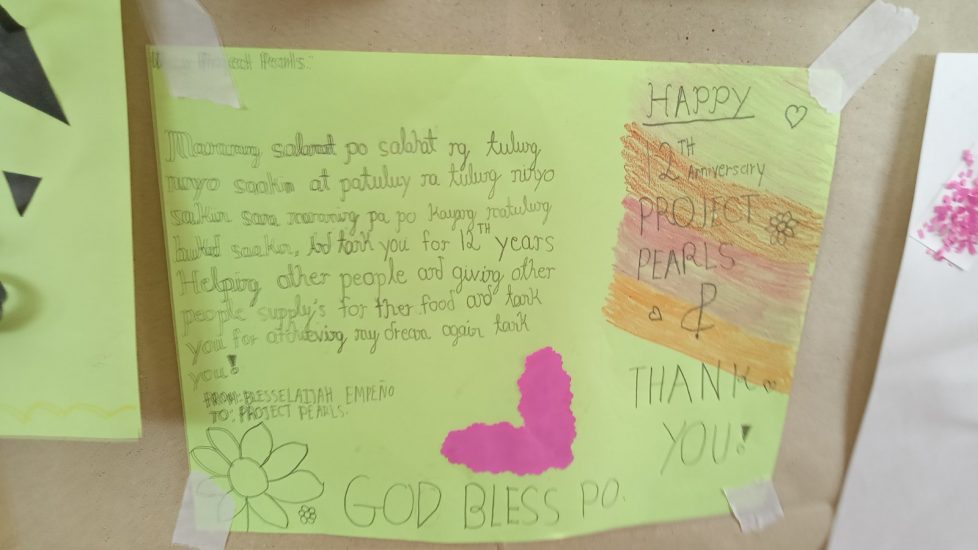 Project Pearls:
Maraming salamat po salahat ng tulung
niyo saakin at patuluy na tulung niniyo
sakin sana maraming pa po kayong matulung
bukod saakin, And tank you for 12TH years
Helping other people and giving other
people supply's for ther food and tank
you for atchieving my dream again tank
you!
FROM: BLESSELAIJAH EMPEÑO
TO: PROJECT PEARLS.
GOD BLESS PO.
HAPPY
12TH Anniversary
PROJECT
PEARLS
&
THANK
YOU!